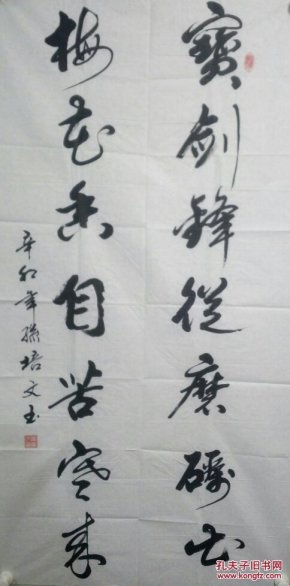 寶劍鋒從磨礪出
梅花香自苦寒来
辛卯年孫培文书
孔夫子旧书网